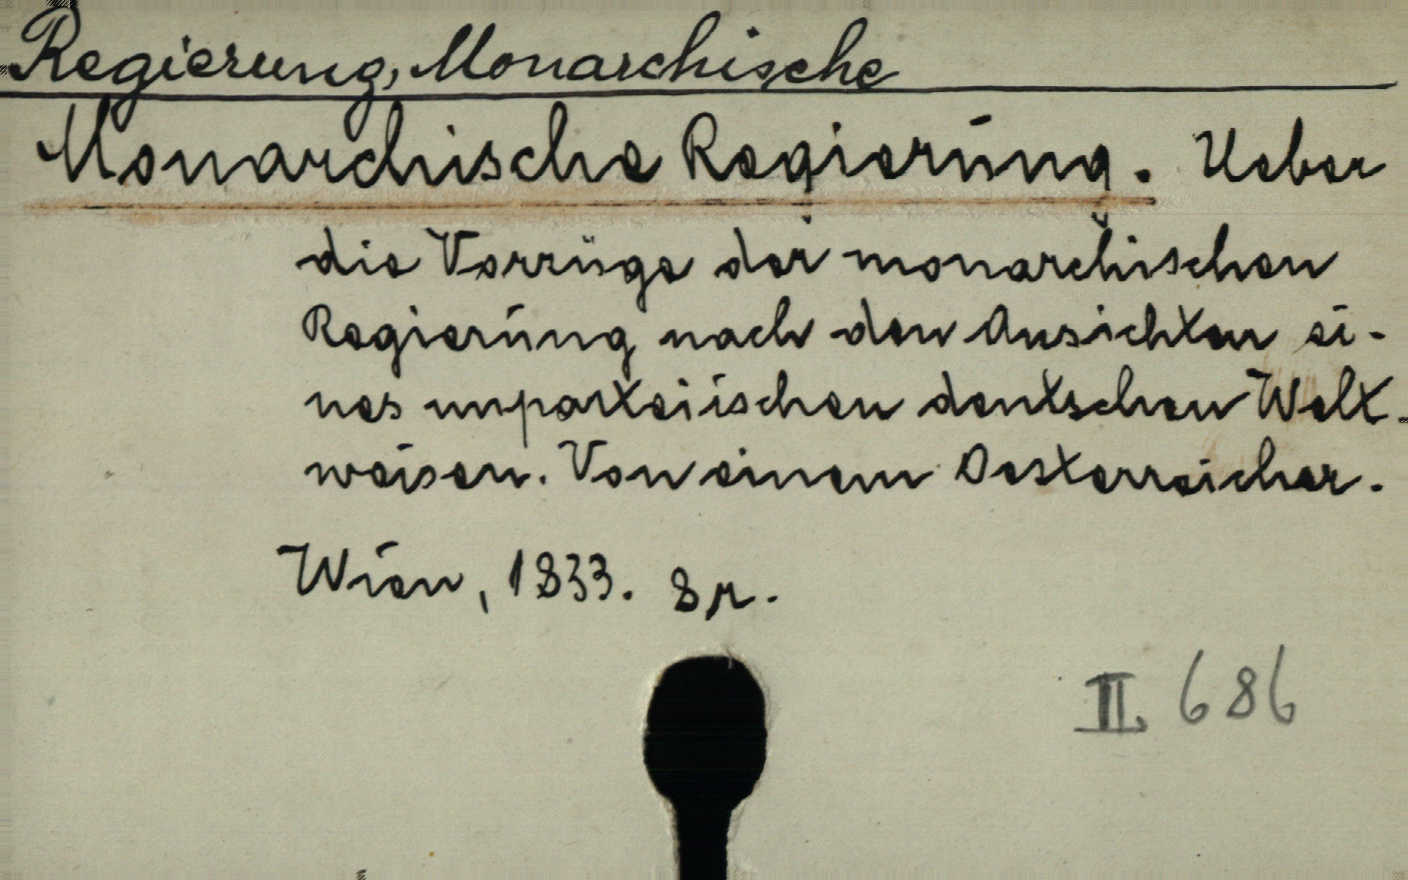 Regierung, Monarchische
Monarchische Regierung. Ueber
die Vorzüge der monarchischen
Regierung nach den Ansichten ei-
nes unparteiischen deutschen Welt-
weisen. Von einem Oesterreicher.
Wien, 1833. 8r.
II. 686